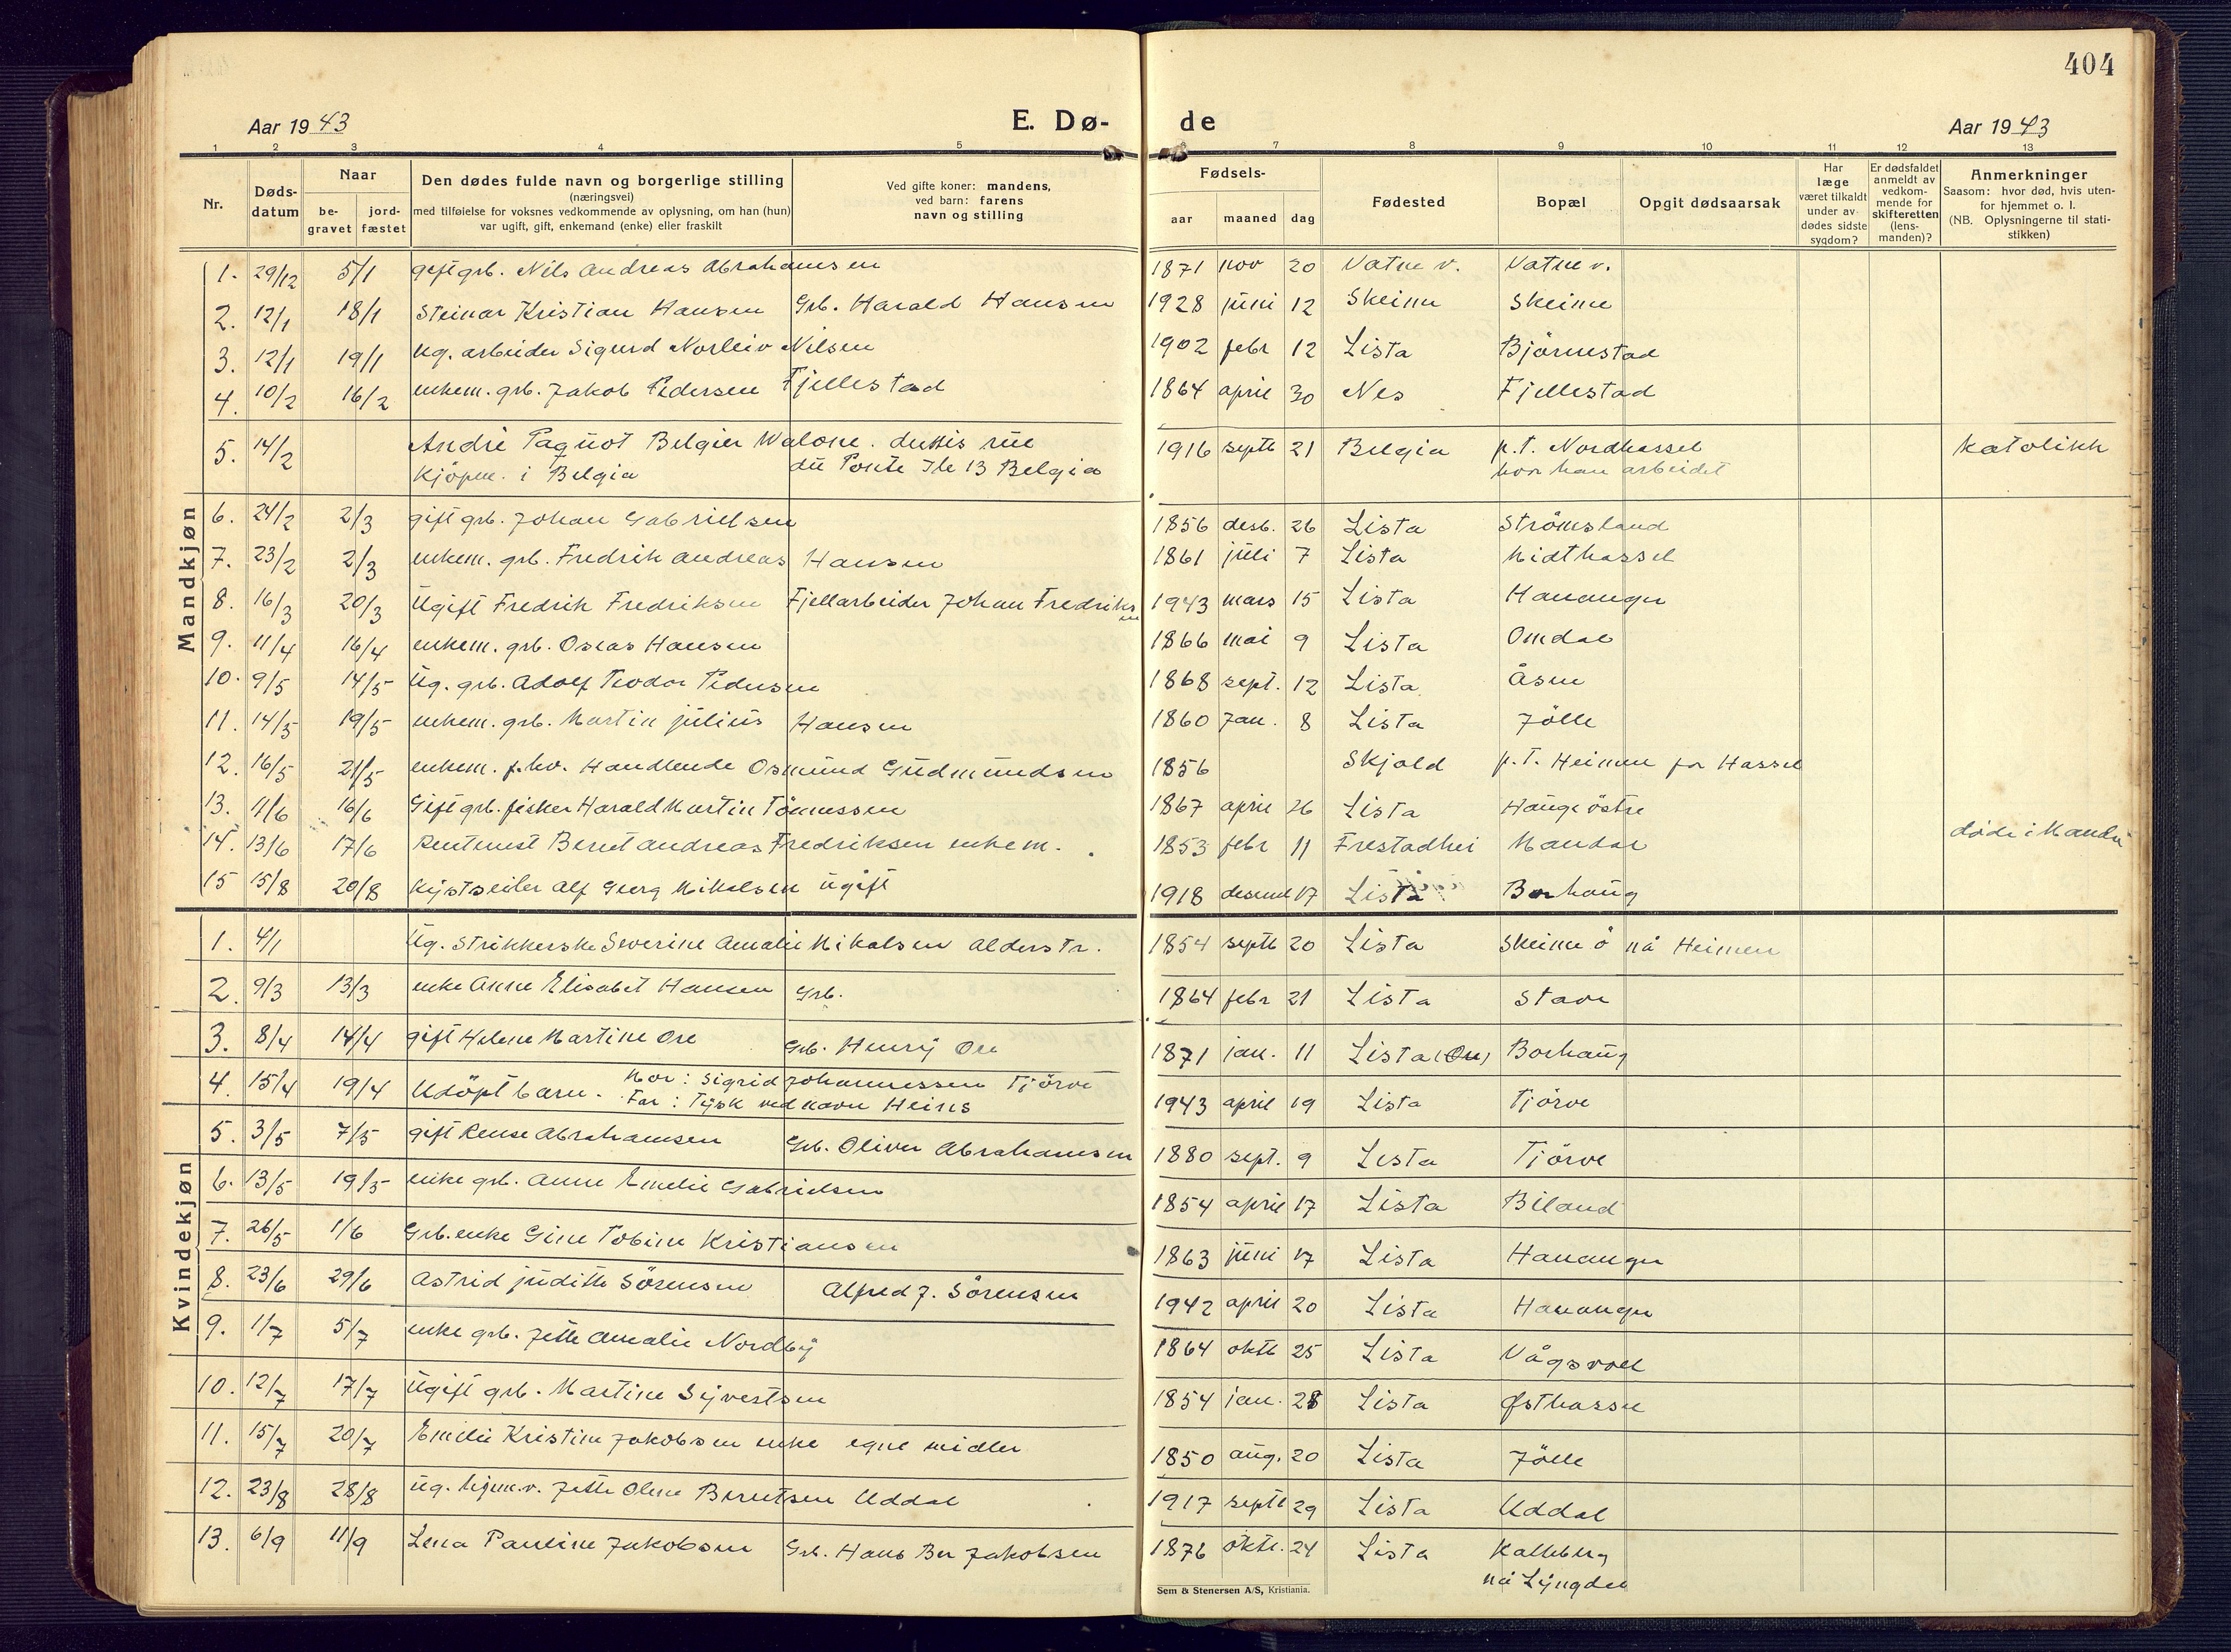 404
Aar 1943 E. Dø- de Aar 1943
1 2 3 4 5 6 7 8 9 10 11 12 13
Nr.
Døds-
datum
Naar
be-
gravet
jord-
fæstet
Den dødes fulde navn og borgerlige stilling
(næringsvei)
med tilføielse for voksnes vedkommende av oplysning, om han (hun)
var ugift, gift, enkemand (enke) eller fraskilt
Ved gifte koner: mandens,
ved barn: farens
navn og stilling
Fødsels-
aar maaned dag
Fødested
Bopæl
Opgit dødsaarsak
Har
læge
været tilkaldt
under av-
dødes sidste
sygdom?
Er dødsfaldet
anmeldt av
vedkom-
mende for
skifteretten
(lens-
manden)?
Anmerkninger
Saasom: hvor død, hvis uten-
for hjemmet o. l.
(NB. Oplysningerne til stati-
stikken)
Mandkjøn
1. 29/12 5/1 gift grb. Nils Andreas Abrahamsen 1871 nov 20 Vatne v. Vatne v.
2. 12/1 18/1 Steinar Kristian Hansen Grb. Harald Hansen 1928 juni 12 Skeime Skeime
3. 12/1 19/1 Ug. arbeider Sigurd Norleiv Nilsen 1902 febr 12 Lista Björnestad
4. 10/2 16/2 enkem. grb. Jakob Pedersen Fjellestad 1864 april 30 Nes Fjellestad
5. 14/2 André Paquot Belgier Walone. rue 1916 septb 21 Belgia p.T. Nordhassel katolikk
Kjöpm. i Belgia du Ponte 13 Belgia hvor han arbeidet
6. 24/2 2/3 gift grb. Johan Gabrielsen 1856 desb. 26 Lista Strömsland
7. 23/2 2/3 enkem. grb. Fredrik Andreas Hansen 1861 juli 7 Lista Midthassel
8. 16/3 20/3 Ugift Fredrik Fredriksen Fjellarbeider Johan Fredriksen 1943 mars 15 Lista Hananger
9. 11/4 16/4 enkem. grb. Oseas Hansen 1866 mai 9 Lista Omdal
10. 9/5 14/5 Ug. grb. Adolf Teodor Pedersen 1868 sept. 12 Lista Åsen
11. 14/5 19/5 enkem. grb. Martin Julius Hansen 1860 Jan. 8 Lista Jölle
12. 16/5 21/5 enkem. f.hv. Handlende Osmund Gudmundsen 1856 Skjold p.T. Heimen for Hassel
13. 11/6 16/6 Gift grb. fisker Harald Martin Tönnessen 1867 april 26 Lista Hauge östre
14. 13/6 17/6 Rentenist Berent Andreas Fredriksen enkem. 1853 febr 11 Frestadhei Mandal döde i Mandal
15 15/8 20/8 Kystseiler Alf Georg Mikalsen ugift 1918 desemb 17 Lista Borhaug
Kvindekjøn
1. 4/1 Ug. Strikkerske Severine Amalie Mikalsen alderstr. 1854 septb 20 Lista Skeime ö nå Heimen
2. 9/3 13/3 enke Anne Elisabet Hansen Grb. 1864 febr 21 Lista Stave
3. 8/4 14/4 gift Helene Martine Ore Grb. Henry Ore 1871 jan. 11 Lista (Ore) Borhaug
4. 15/4 19/4 Udöpt barn. Mor: Sigrid Johannessen Tjörve 1943 april 19 Lista Tjörve
Far: Tysk ved navn Heins
5. 3/5 7/5 gift Rense Abrahamsen Grb. Oliver Abrahamsen 1880 sept. 9 Lista Tjörve
6. 13/5 19/5 enke grb. Anne Emelie Gabrielsen 1854 april 17 Lista Biland
7. 26/5 1/6 Grb. enke Gine Tobine Kristiansen 1863 juni 17 Lista Hananger
8. 23/6 29/6 Astrid Judith Sörensen Alfred J. Sörensen 1942 april 20 Lista Hananger
9. 1/7 5/7 enke grb. Jette Amalie Nordby 1864 oktb 25 Lista Vågsvoll
10. 12/7 17/7 Ugift grb. Martine Syvertsen 1854 jan. 28 Lista Østhassel
11. 15/7 20/7 Emilie Kristine Jakobsen enke egne midler 1850 aug. 20 Lista Jölle
12. 23/8 28/8 ug. hjem.v. Jette Olene Berntsen Uddal 1917 septb 29 Lista Uddal
13. 6/9 11/9 Lena Pauline Jakobsen Grb. Hans Ber Jakobsen 1876 oktb. 24 Lista Kalleberg
nå Lyngdal
Sem & Stenersen A/S, Kristiania.